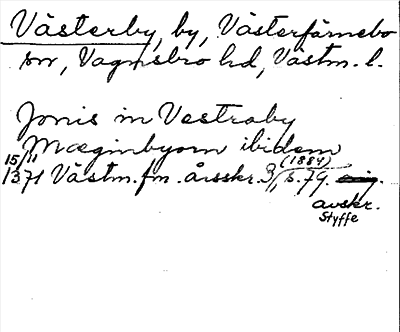 Västerby, by, Västerfärnebo
sn, Vagnsbro hd, Västm. l.
Jonis in Vestraby
Mæginbyorn ibidem
15/11 (1884)
1371 Västm. fm. årsskr. 3, s. 79.
avskr.
Styffe